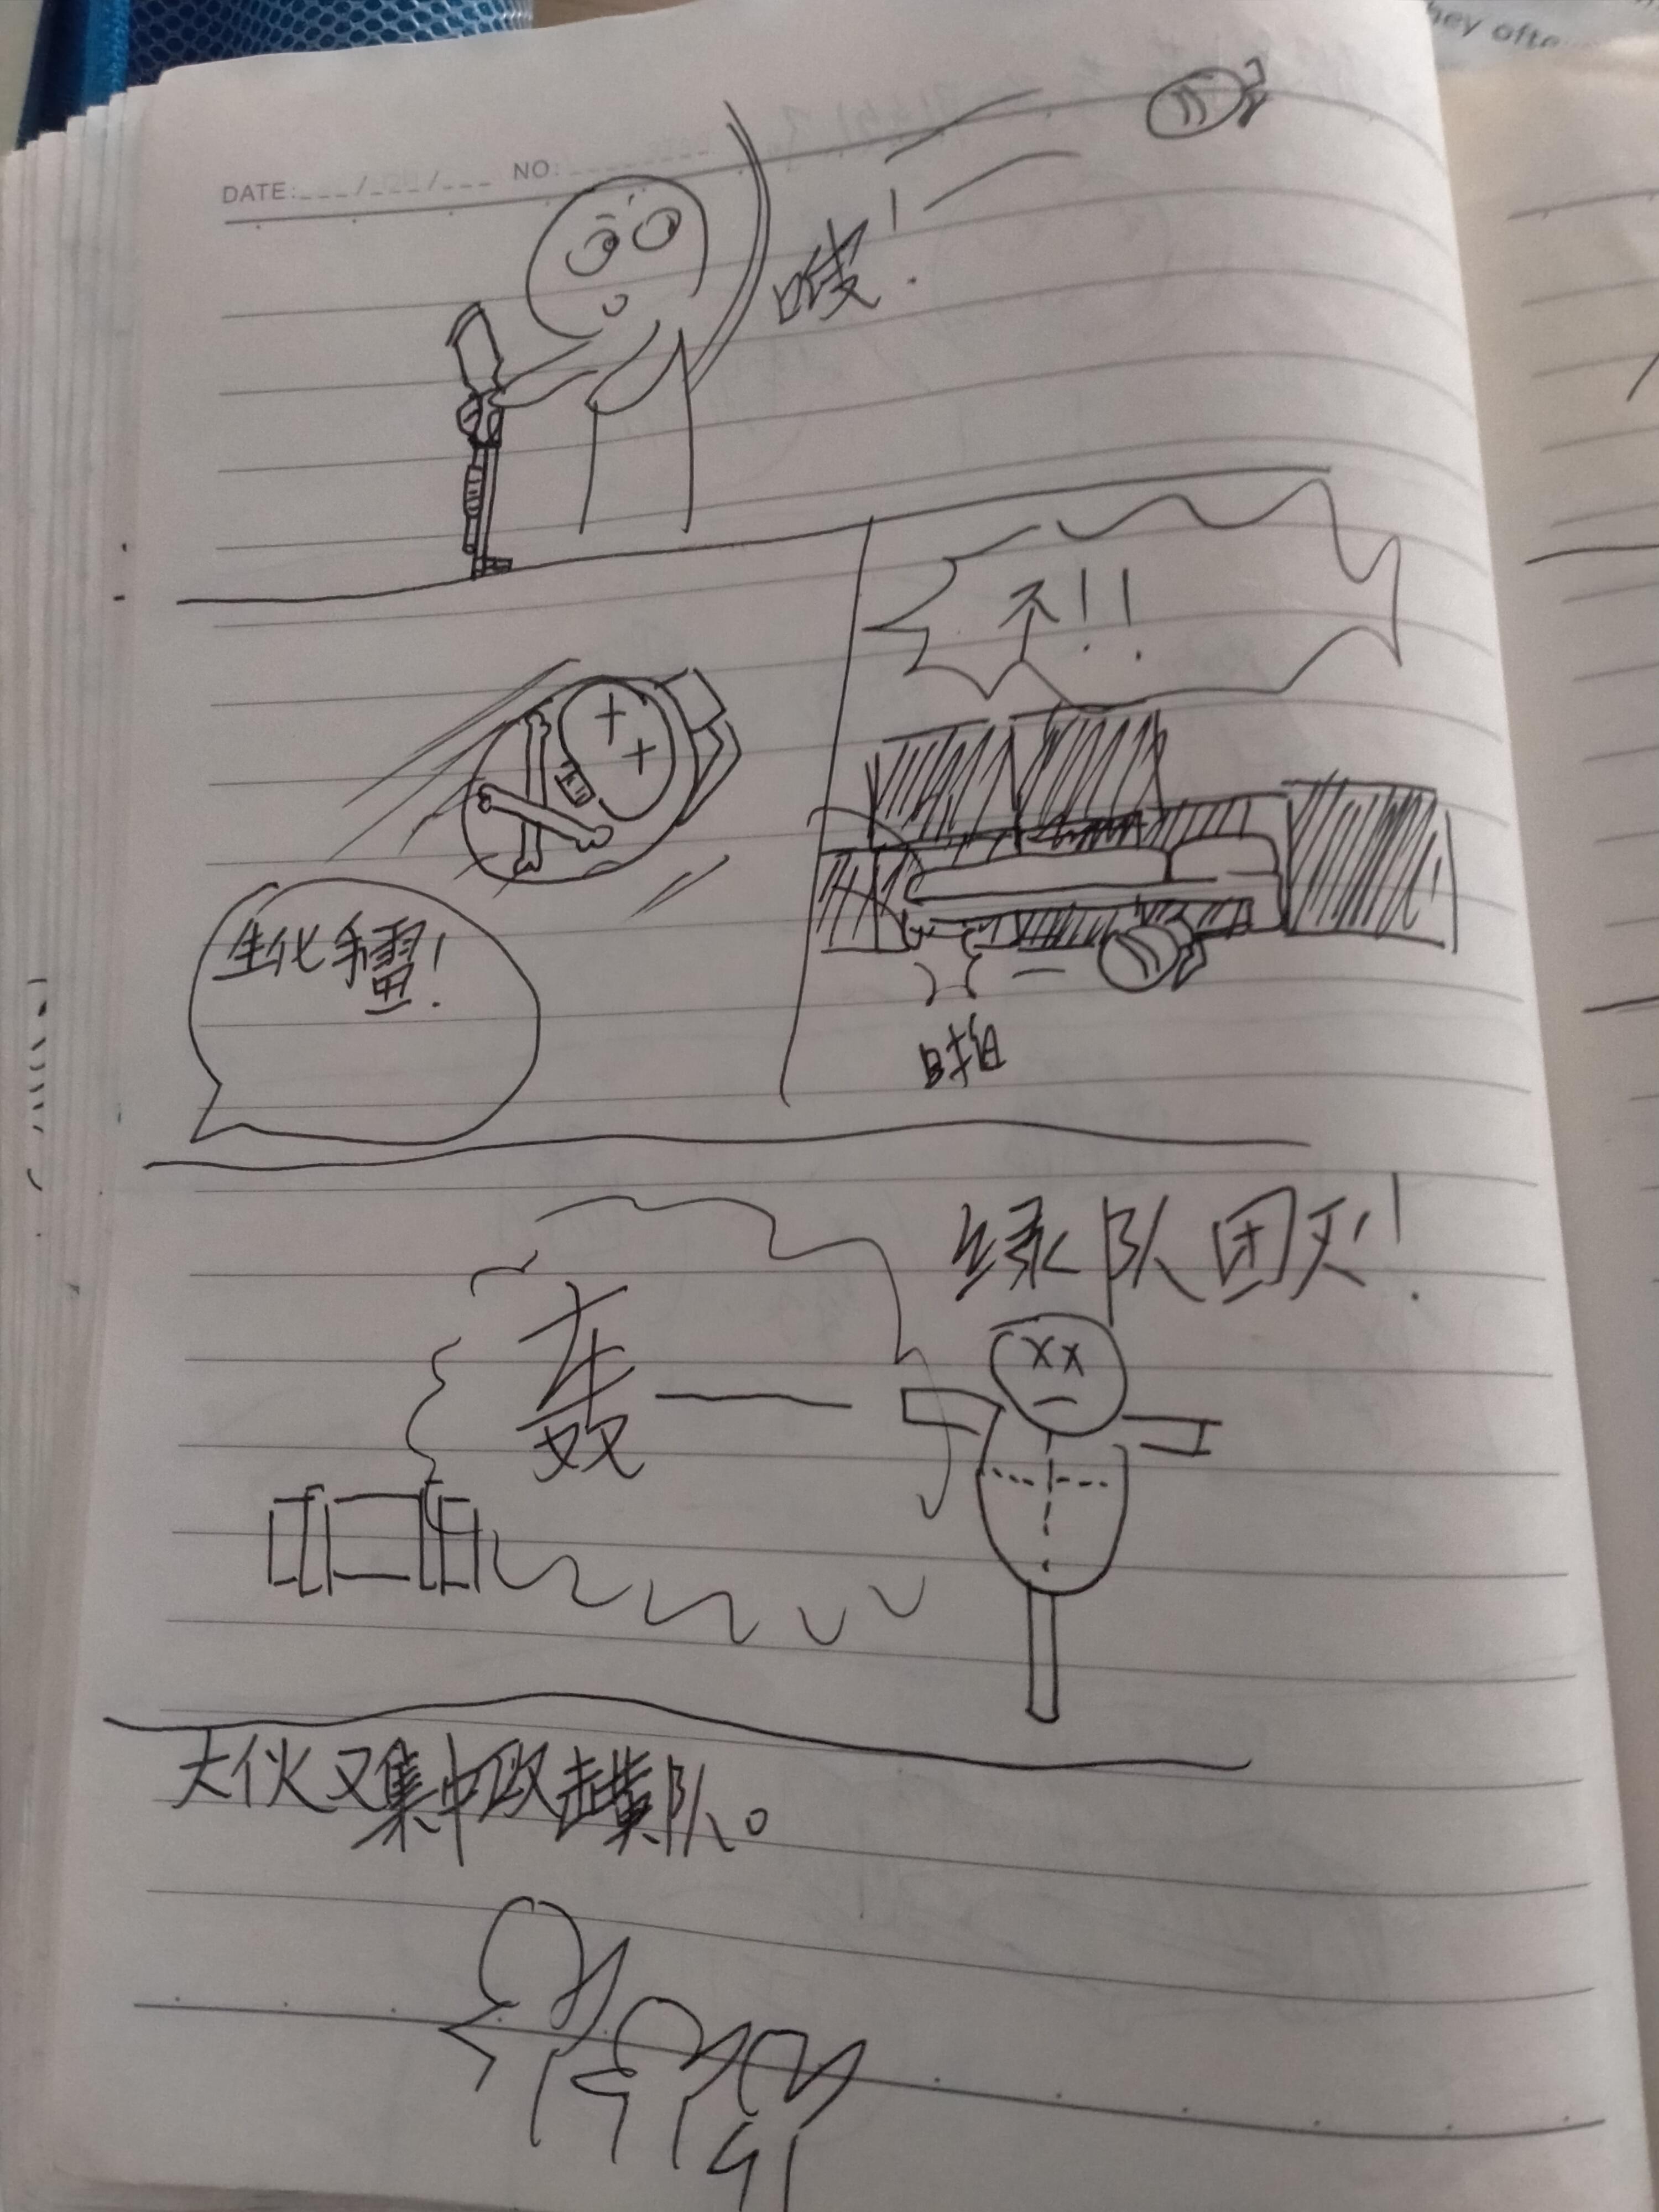 hey ofte
DATE: / / NO:
嗖!
不!!
生化手雷!
绿队团灭!
轰——
大伙又集中攻击黄队。